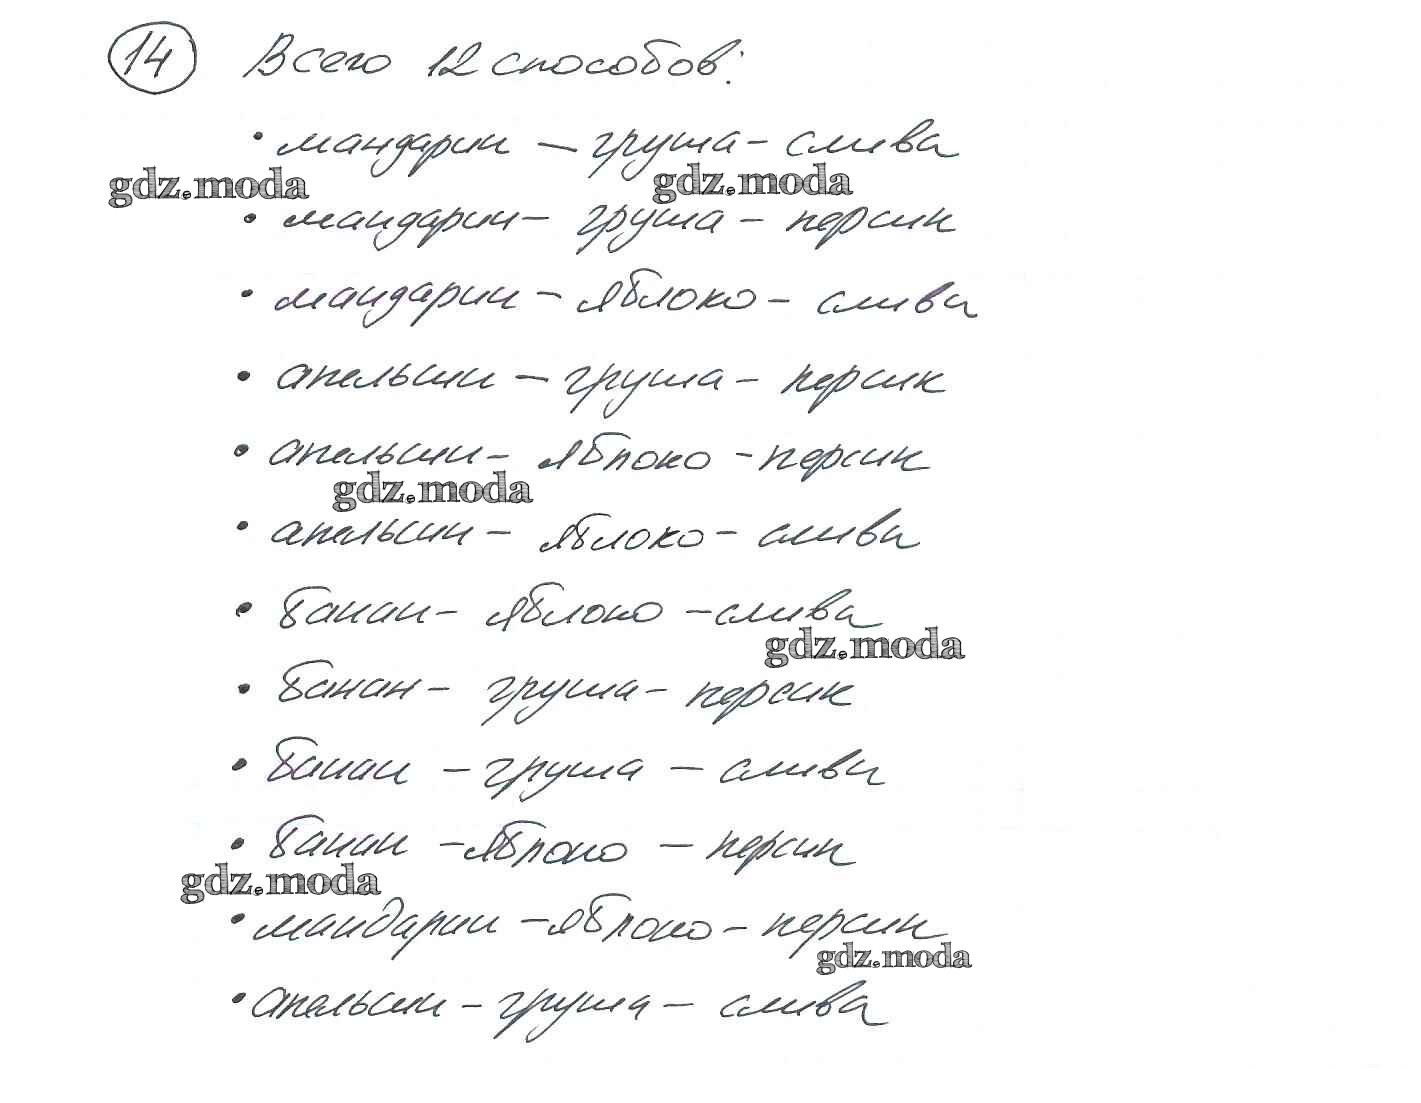 14 Всего 12 способов:
• мандарин – груша – слива
gdz.moda gdz.moda
• мандарин – груша – персик
• мандарин – яблоко – слива
• апельсин – груша – персик
• апельсин – яблоко – персик
gdz.moda
• апельсин – яблоко – слива
• банан – яблоко – слива
gdz.moda
• банан – груша – персик
• банан – груша – слива
• банан – яблоко – персик
gdz.moda
• мандарин – яблоко – персик
gdz.moda
• апельсин – груша – слива